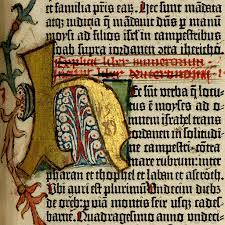 et familia pr̄is eaꝝ. Hec sunt mādata
atq; iudicia q̄ mādauit dn̄s p manū
moysi ad filios isrl̄ in campestribus
moab supra iordanem cōtra ihericho
Explicit liber numerorum
liber deuteronomii
Ec sūt verba q̄ locu
moyses ad omnem
israel trans
iordanem in solitudine
campestri: cōtra
mare rubrum: inter
pharan et thophel et laban et aseroth.
Ubi auri est plurimum. Undecim diebꝫ
de oreb: p viā montis seir usqꝫ cades
barne. Quadragesimo anno undeci